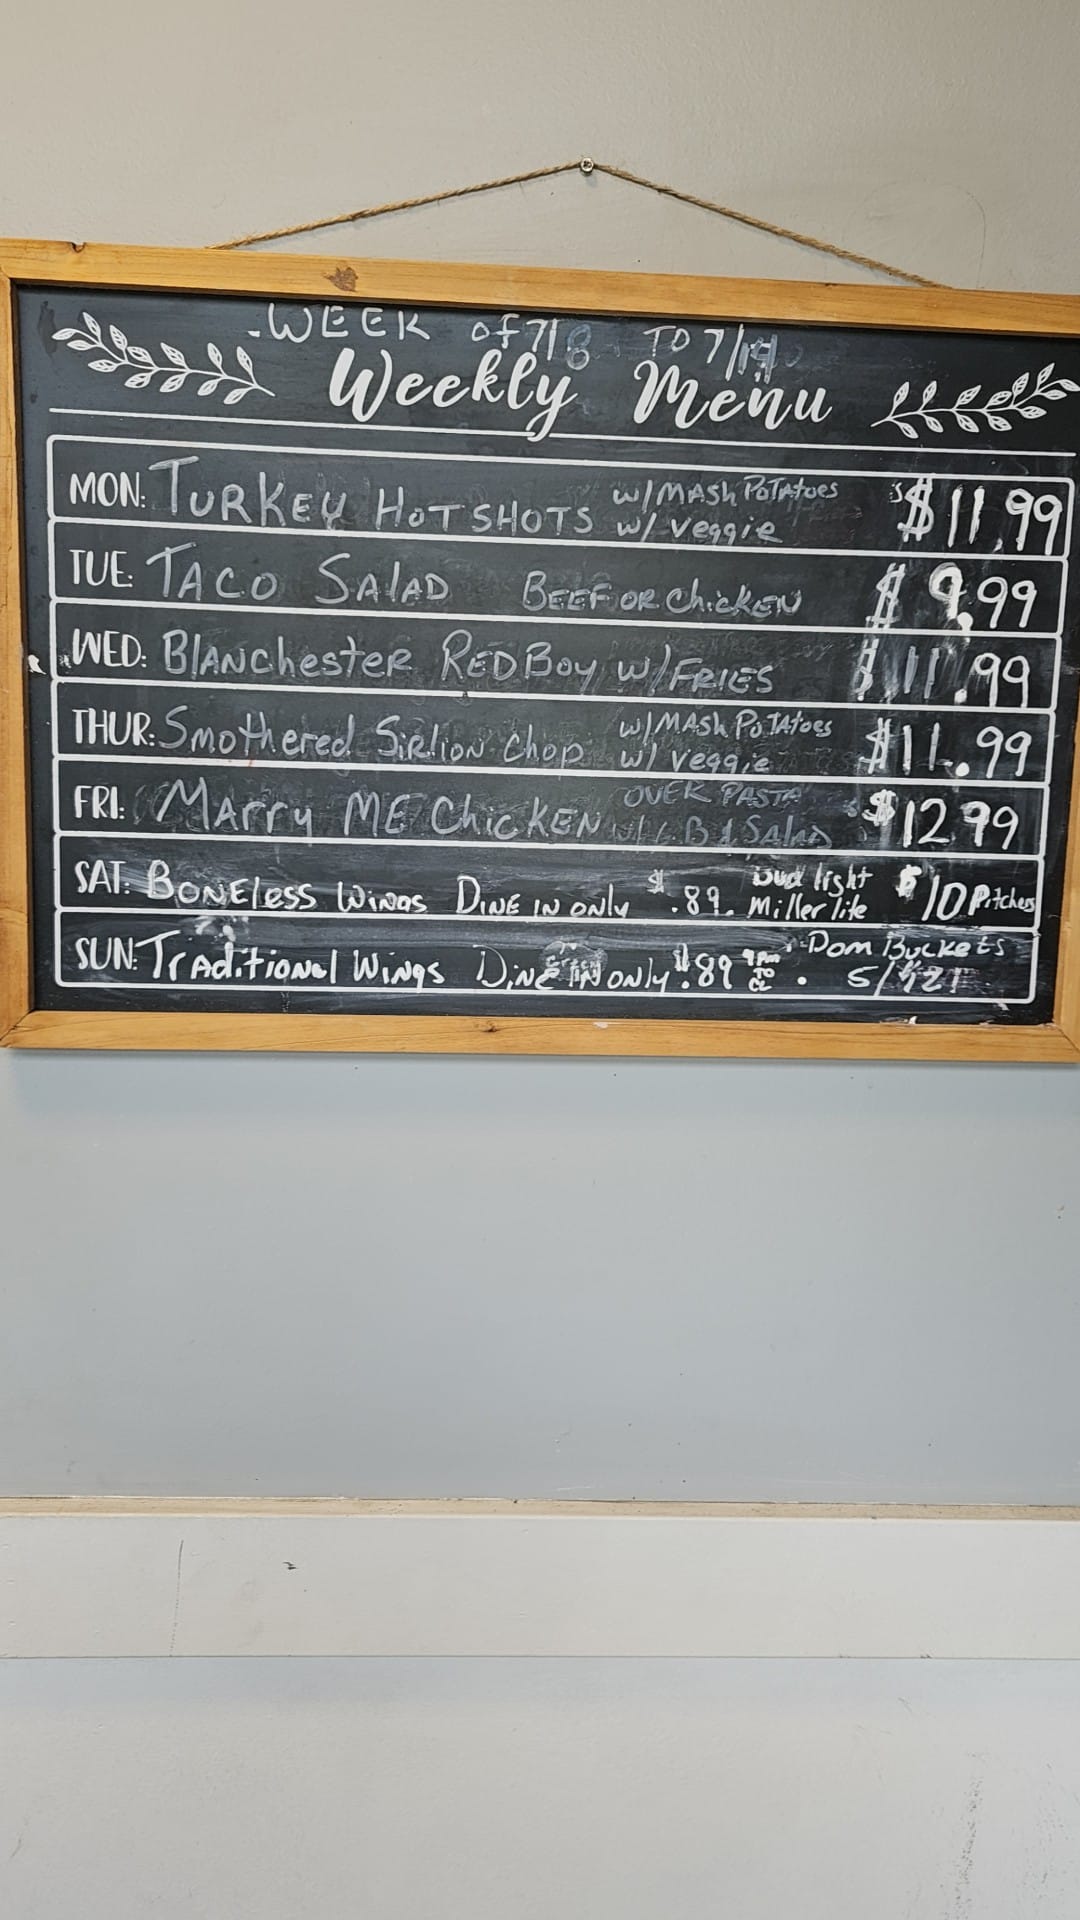 WEEK of 7/8 TO 7/14
Weekly Menu
MON: TURKEY HOT SHOTS w/MASH POTATOES w/ Veggie $11.99
TUE: TACO SALAD BEEF OR ChickEN $9.99
WED: BLANchesteR REDBoy w/FRIES $11.99
THUR: Smothered SiRlion chop w/MASh PoTAToes w/ Veggie $11.99
FRI: MArry ME ChicKEN OVER PASTA & SALAD $12.99
SAT: BONEless WiNGs DINE IN ONLY $.89. Bud light Miller lite $10 Pitchers
SUN: TrADiTiONal WiNGs DiNE IN ONLY $.89 Dom BuckeTs 5/$